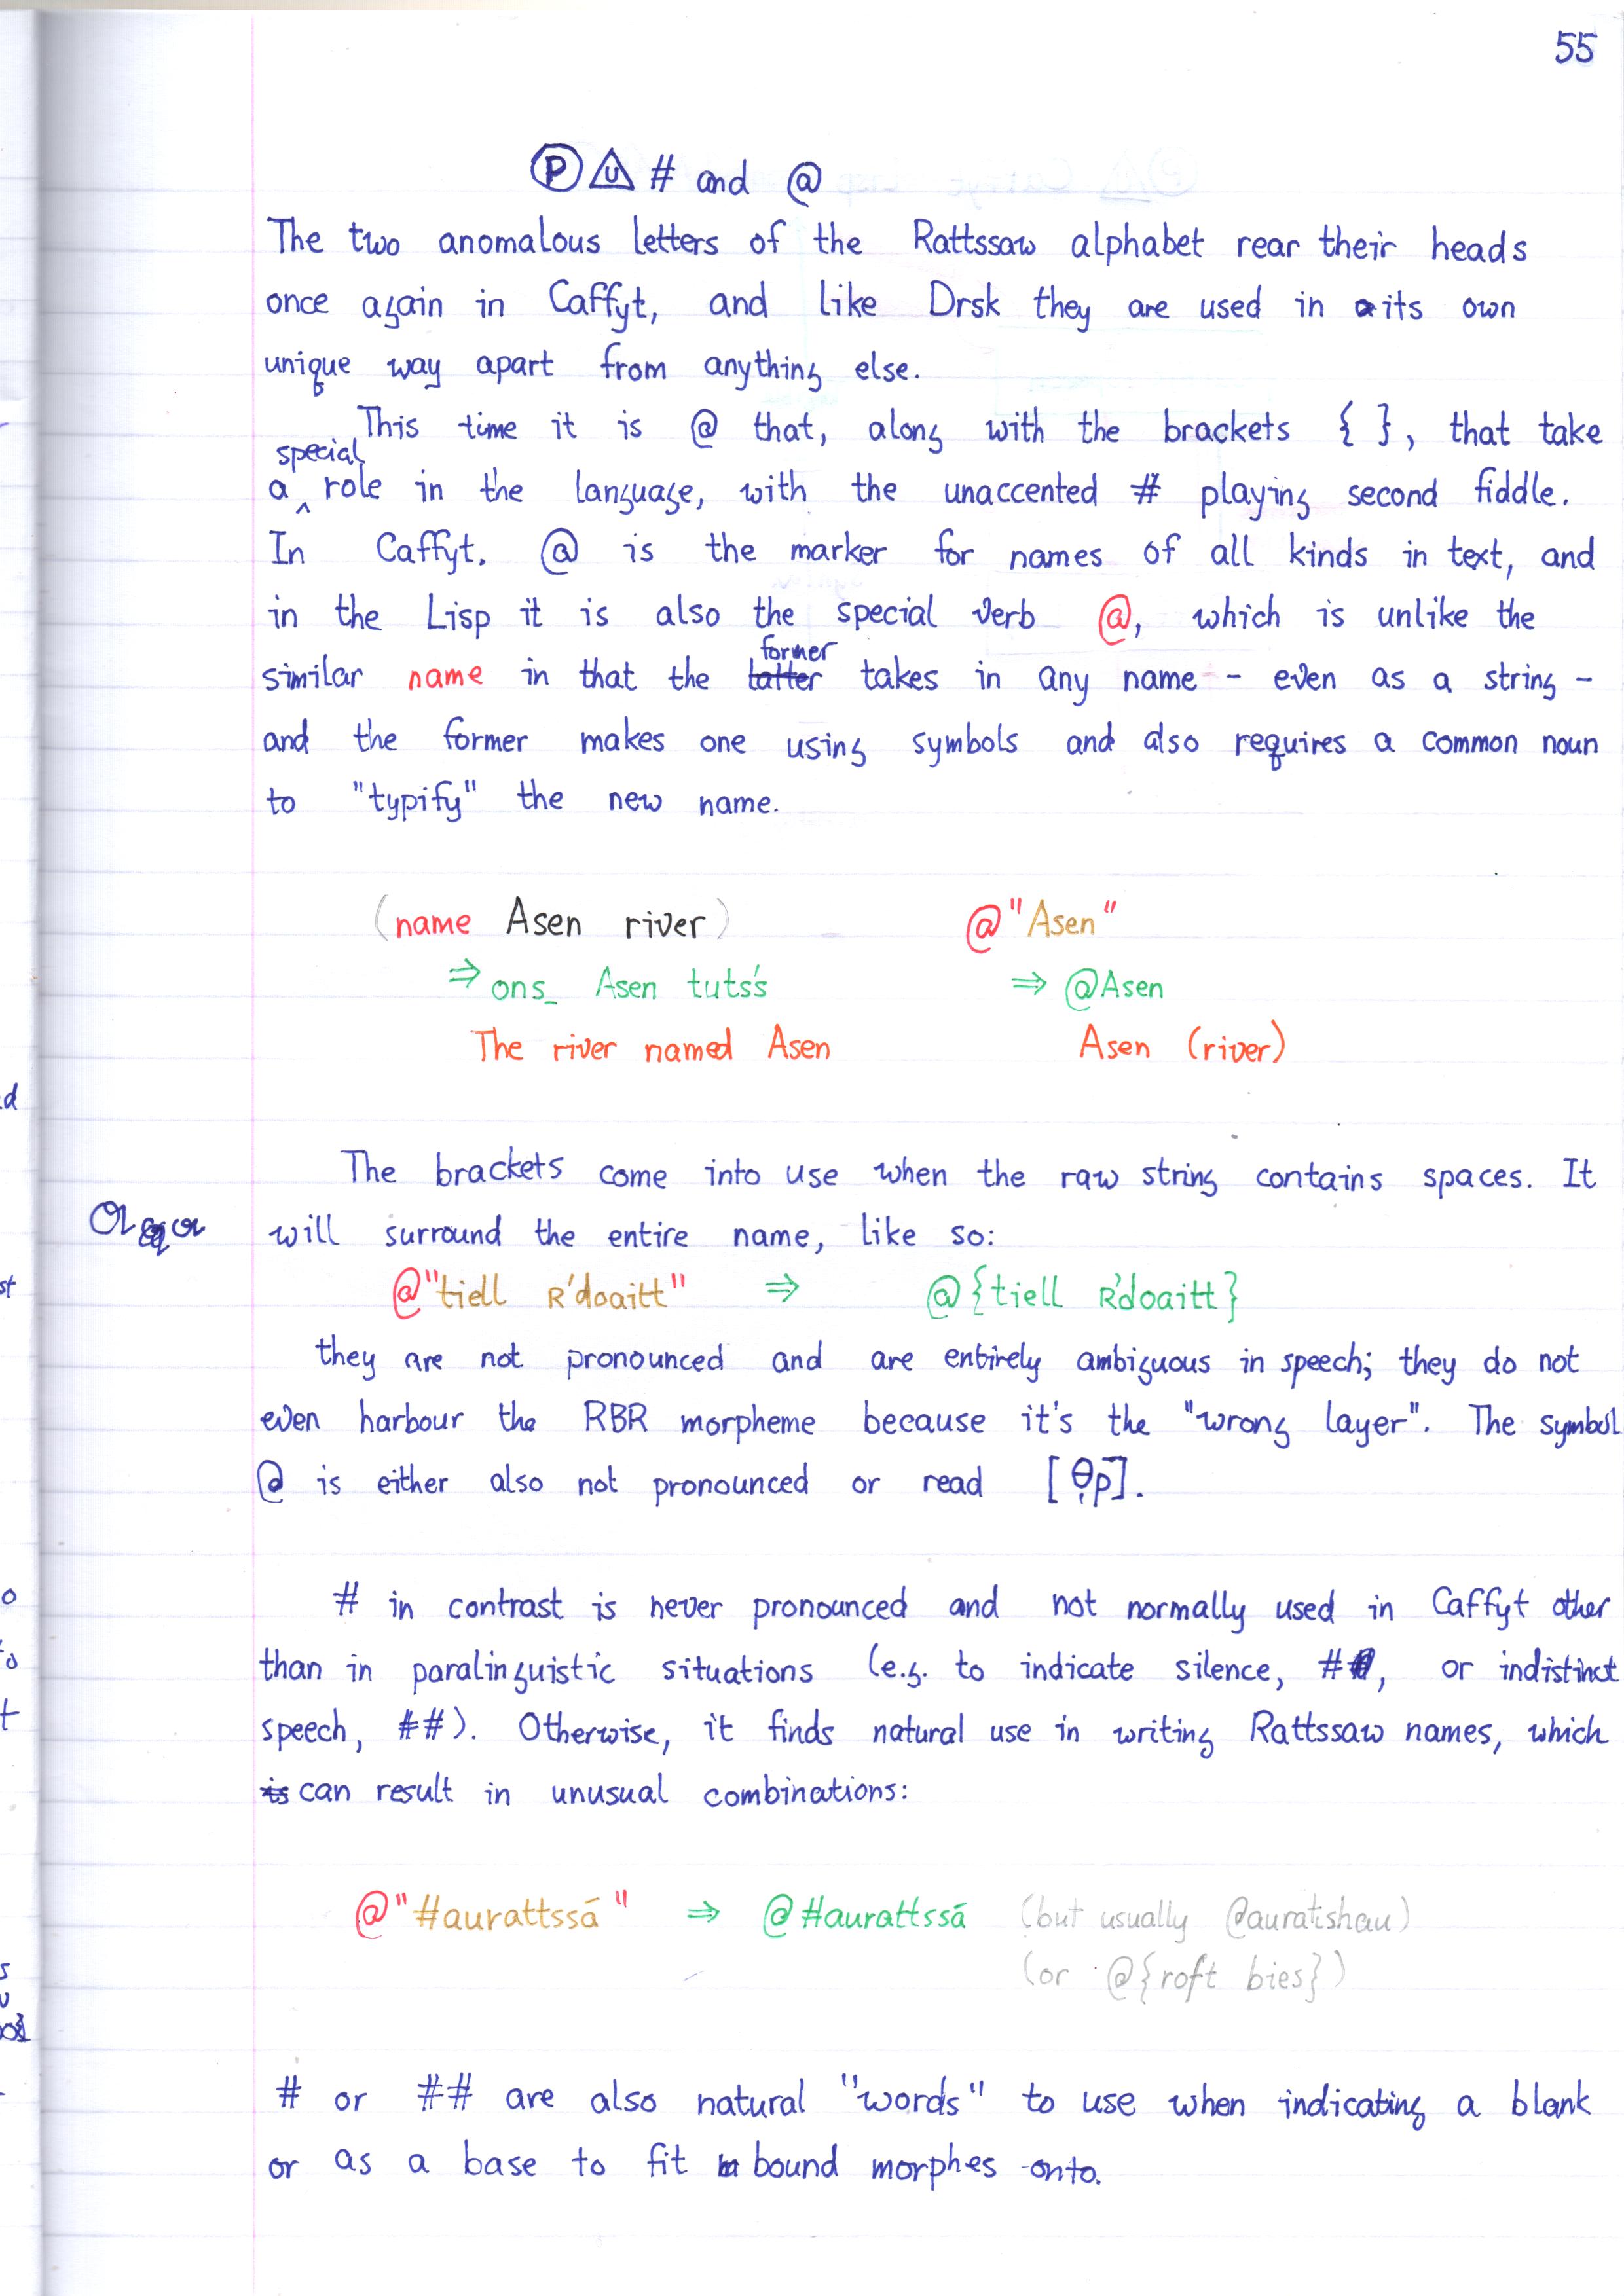 55
Ⓟ # and @
The two anomalous letters of the Rattssaw alphabet rear their heads
once again in Caffyt, and like Drsk they are used in its own
unique way apart from anything else.
This time it is @ that, along with the brackets { }, that take
a special role in the language, with the unaccented # playing second fiddle.
In Caffyt, @ is the marker for names of all kinds in text, and
in the Lisp it is also the special verb @, which is unlike the
similar name in that the former takes in any name - even as a string -
and the former makes one using symbols and also requires a common noun
to "typify" the new name.
(name Asen river) @"Asen"
⇒ ons_ Asen tuts's ⇒ @Asen
The river named Asen Asen (river)
The brackets come into use when the raw string contains spaces. It
will surround the entire name, like so:
@"tiell R'doaitt" ⇒ @{tiell R'doaitt}
they are not pronounced and are entirely ambiguous in speech; they do not
even harbour the RBR morpheme because it's the "wrong layer". The symbol
@ is either also not pronounced or read [θ̩p].
# in contrast is never pronounced and not normally used in Caffyt other
than in paralinguistic situations (e.g. to indicate silence, #, or indistinct
speech, ##). Otherwise, it finds natural use in writing Rattssaw names, which
can result in unusual combinations:
@"#aurattssá" ⇒ @#aurattssá (but usually @auratshau)
(or @{roft bies})
# or ## are also natural "words" to use when indicating a blank
or as a base to fit bound morphes onto.